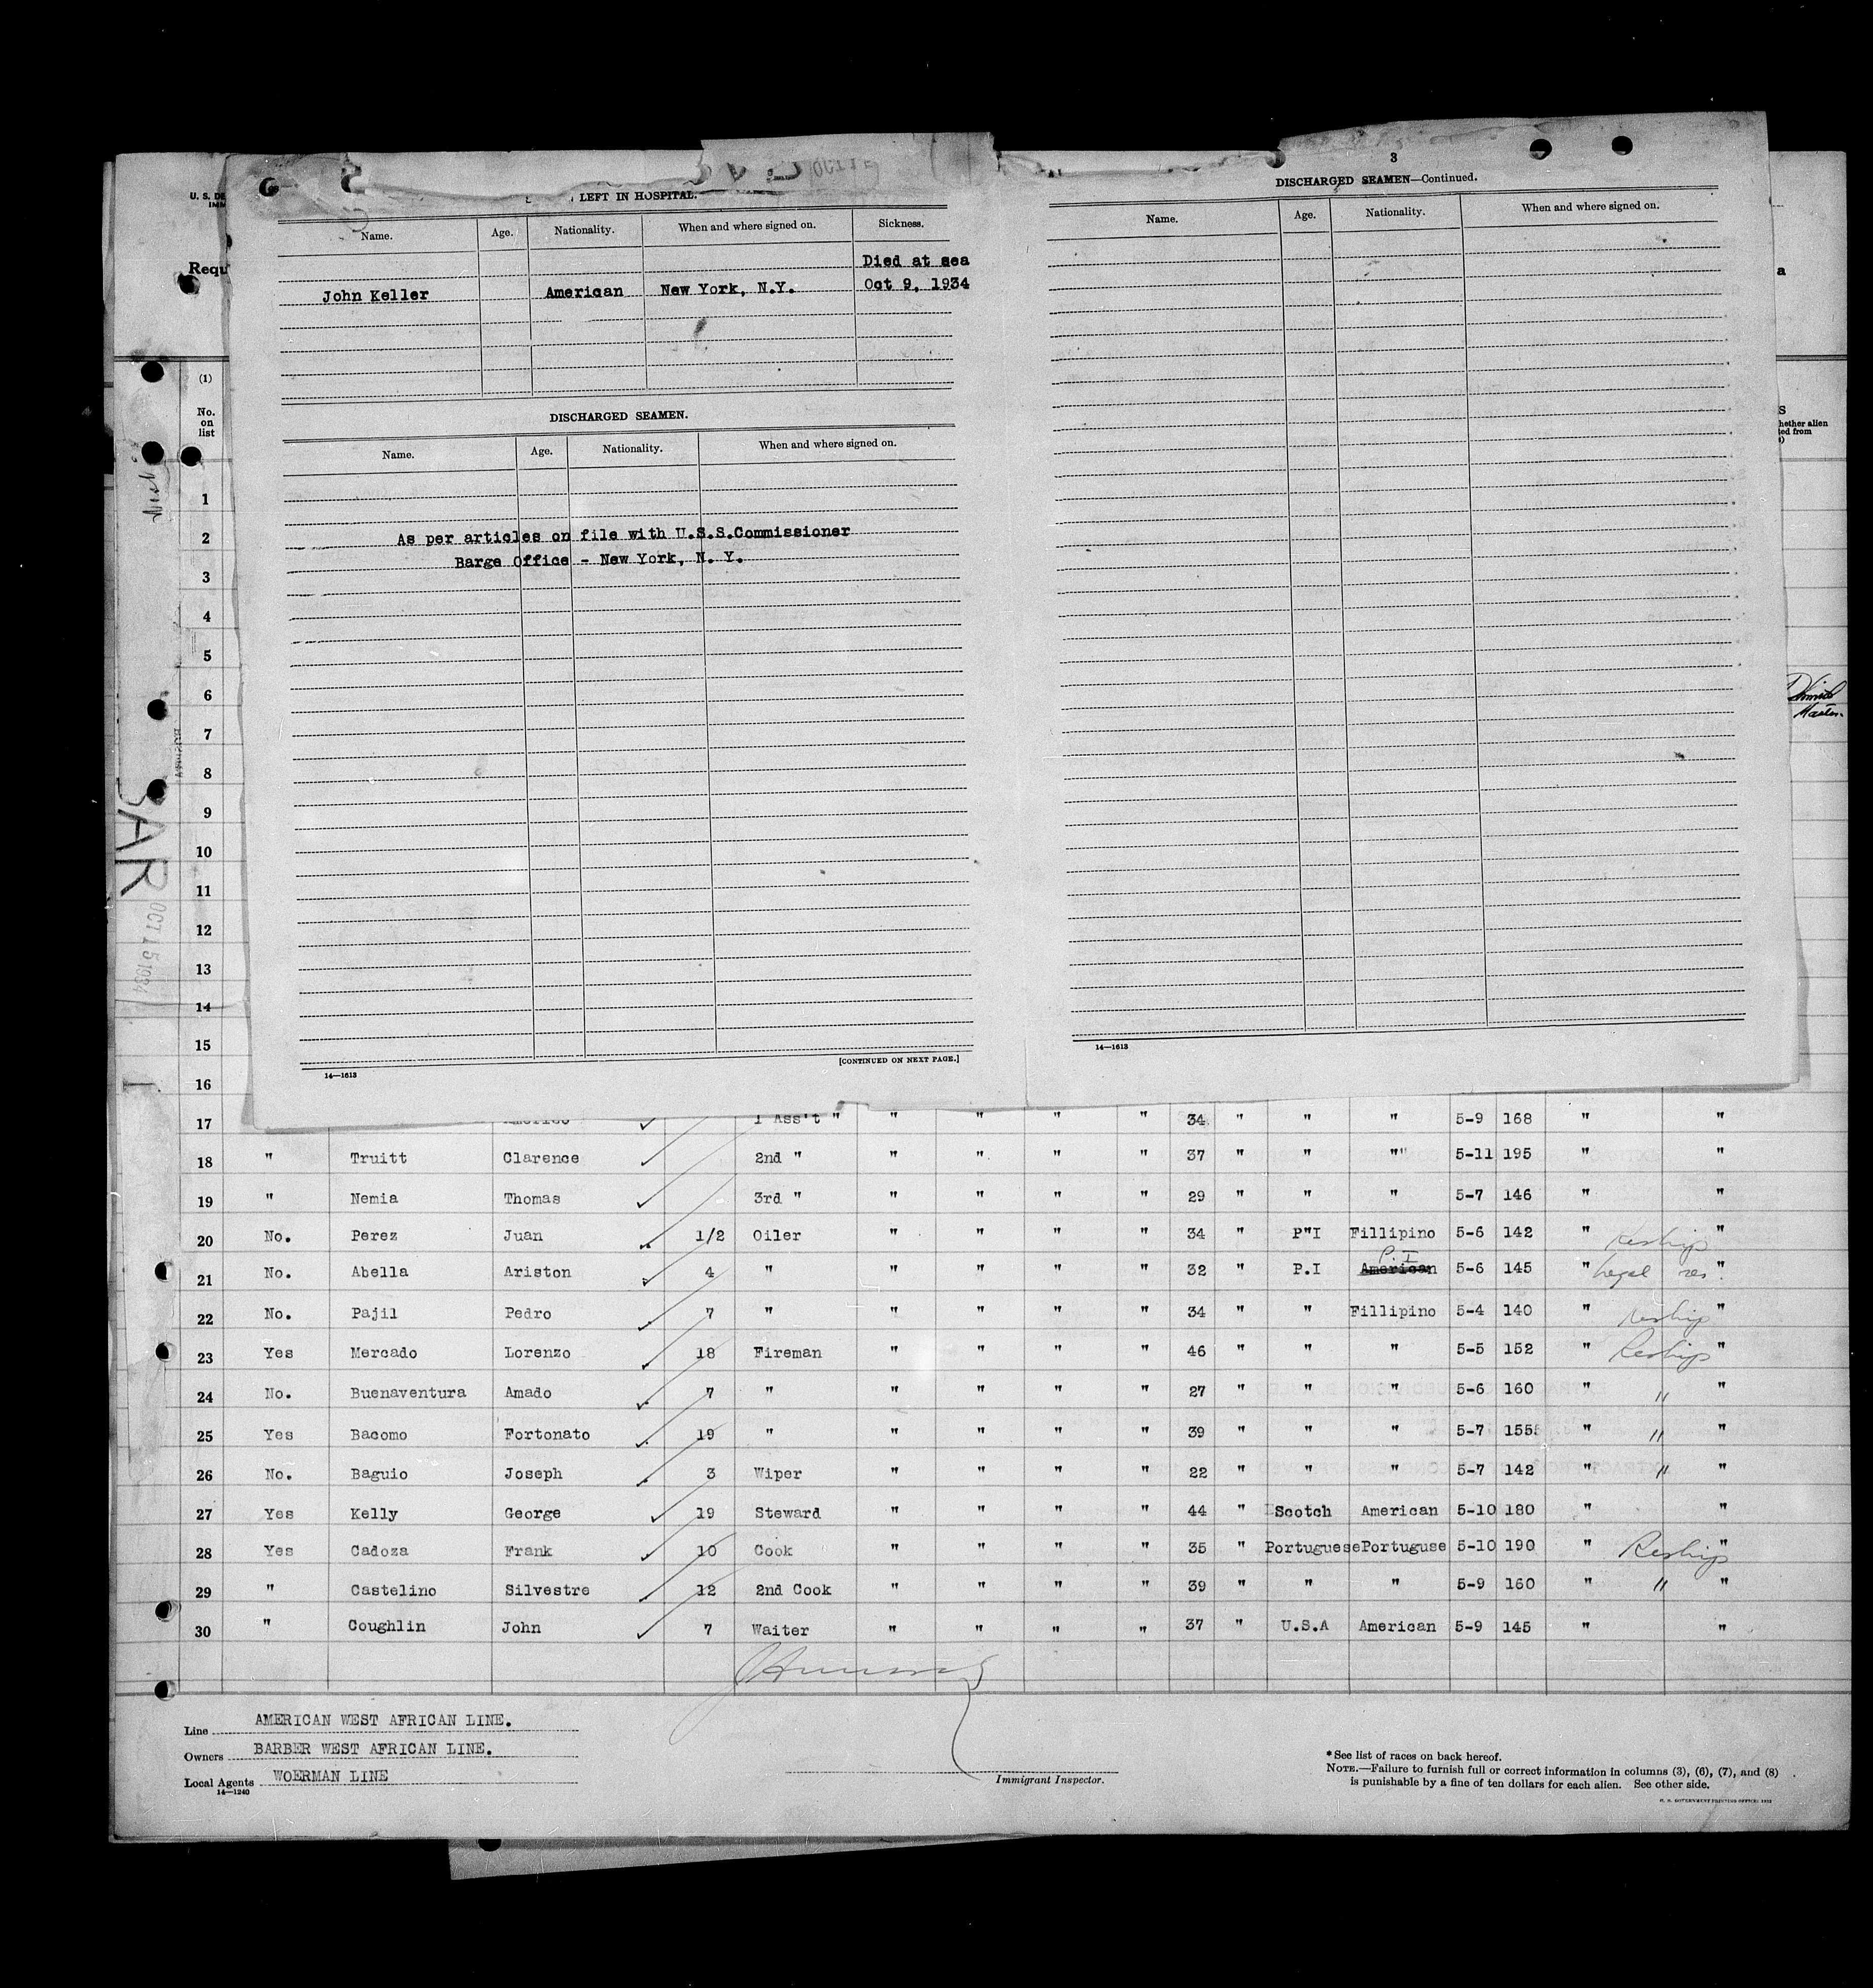 3
LEFT IN HOSPITAL.
Name. Age. Nationality. When and where signed on. Sickness.
Died at sea
John Keller American New York, N.Y. Oct 9, 1934
DISCHARGED SEAMEN.
Name. Age. Nationality. When and where signed on.
As per articles on file with U.S.S.Commissioner
Barge Office - New York, N. Y.
[CONTINUED ON NEXT PAGE.]
14—1613
DISCHARGED SEAMEN—Continued.
Name. Age. Nationality. When and where signed on.
14—1613
U. S. DE
IMM
Requ
a
(1)
No.
on
list
S
hether alien
ted from
Master.
BAR
OCT 15 1934
1
2
3
4
5
6
7
8
9
10
11
12
13
14
15
16
17 1 Ass't " " " " " 34 " " " 5-9 168 " "
18 " Truitt Clarence 2nd " " " " " 37 " " "" 5-11 195 " "
19 " Nemia Thomas 3rd " " " " " 29 " " " 5-7 146 " "
20 No. Perez Juan 1/2 Oiler " " " " 34 " P"I Fillipino 5-6 142 " Reship "
P.I
21 No. Abella Ariston 4 " " " " " 32 " P.I American 5-6 145 " Legal res. "
22 No. Pajil Pedro 7 " " " " " 34 " " Fillipino 5-4 140 " Reship "
23 Yes Mercado Lorenzo 18 Fireman " " " " 46 " " " 5-5 152 " Reship "
24 No. Buenaventura Amado 7 " " " " " 27 " " " 5-6 160 " " "
25 Yes Bacomo Fortonato 19 " " " " " 39 " " " 5-7 155 " " "
26 No. Baguio Joseph 3 Wiper " " " " 22 " " " 5-7 142 " " "
27 Yes Kelly George 19 Steward " " " " 44 " Scotch American 5-10 180 " "
28 Yes Cadoza Frank 10 Cook " " " " 35 " Portuguese Portuguse 5-10 190 " Reship "
29 " Castelino Silvestre 12 2nd Cook " " " " 39 " " " 5-9 160 " " "
30 " Coughlin John 7 Waiter " " " " 37 " U.S.A American 5-9 145 " "
Line AMERICAN WEST AFRICAN LINE.
Owners BARBER WEST AFRICAN LINE.
Local Agents WOERMAN LINE
14—1240
Immigrant Inspector.
*See list of races on back hereof.
NOTE.—Failure to furnish full or correct information in columns (3), (6), (7), and (8)
is punishable by a fine of ten dollars for each alien. See other side.